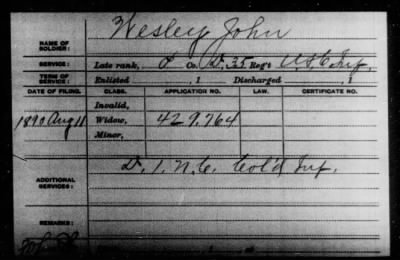 Wesley John
NAME OF SOLDIER:
SERVICE: Late rank, Co. D, 35 Reg't U.S.C. Inf.,
TERM OF SERVICE: Enlisted , 1 Discharged , 1
DATE OF FILING. CLASS. APPLICATION NO. LAW. CERTIFICATE NO.
Invalid,
1890 Aug 11 Widow, 429.764
Minor,
D, 1, N.C. Col'd Inf.
ADDITIONAL SERVICES:
REMARKS: